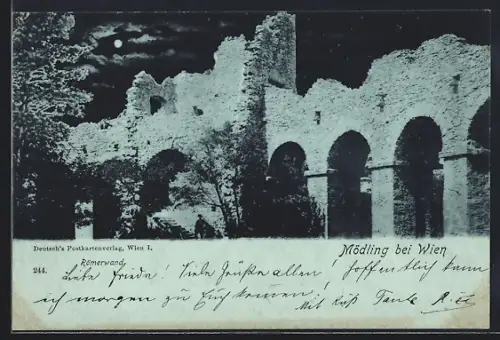 Deutsch's Postkartenverlag, Wien I.
Mödling bei Wien
Römerwand.
244.
Liebe Friede! Viele Grüße allen! Hoffentlich kann
ich morgen zu Euch kommen!
Mit Kuß Tante